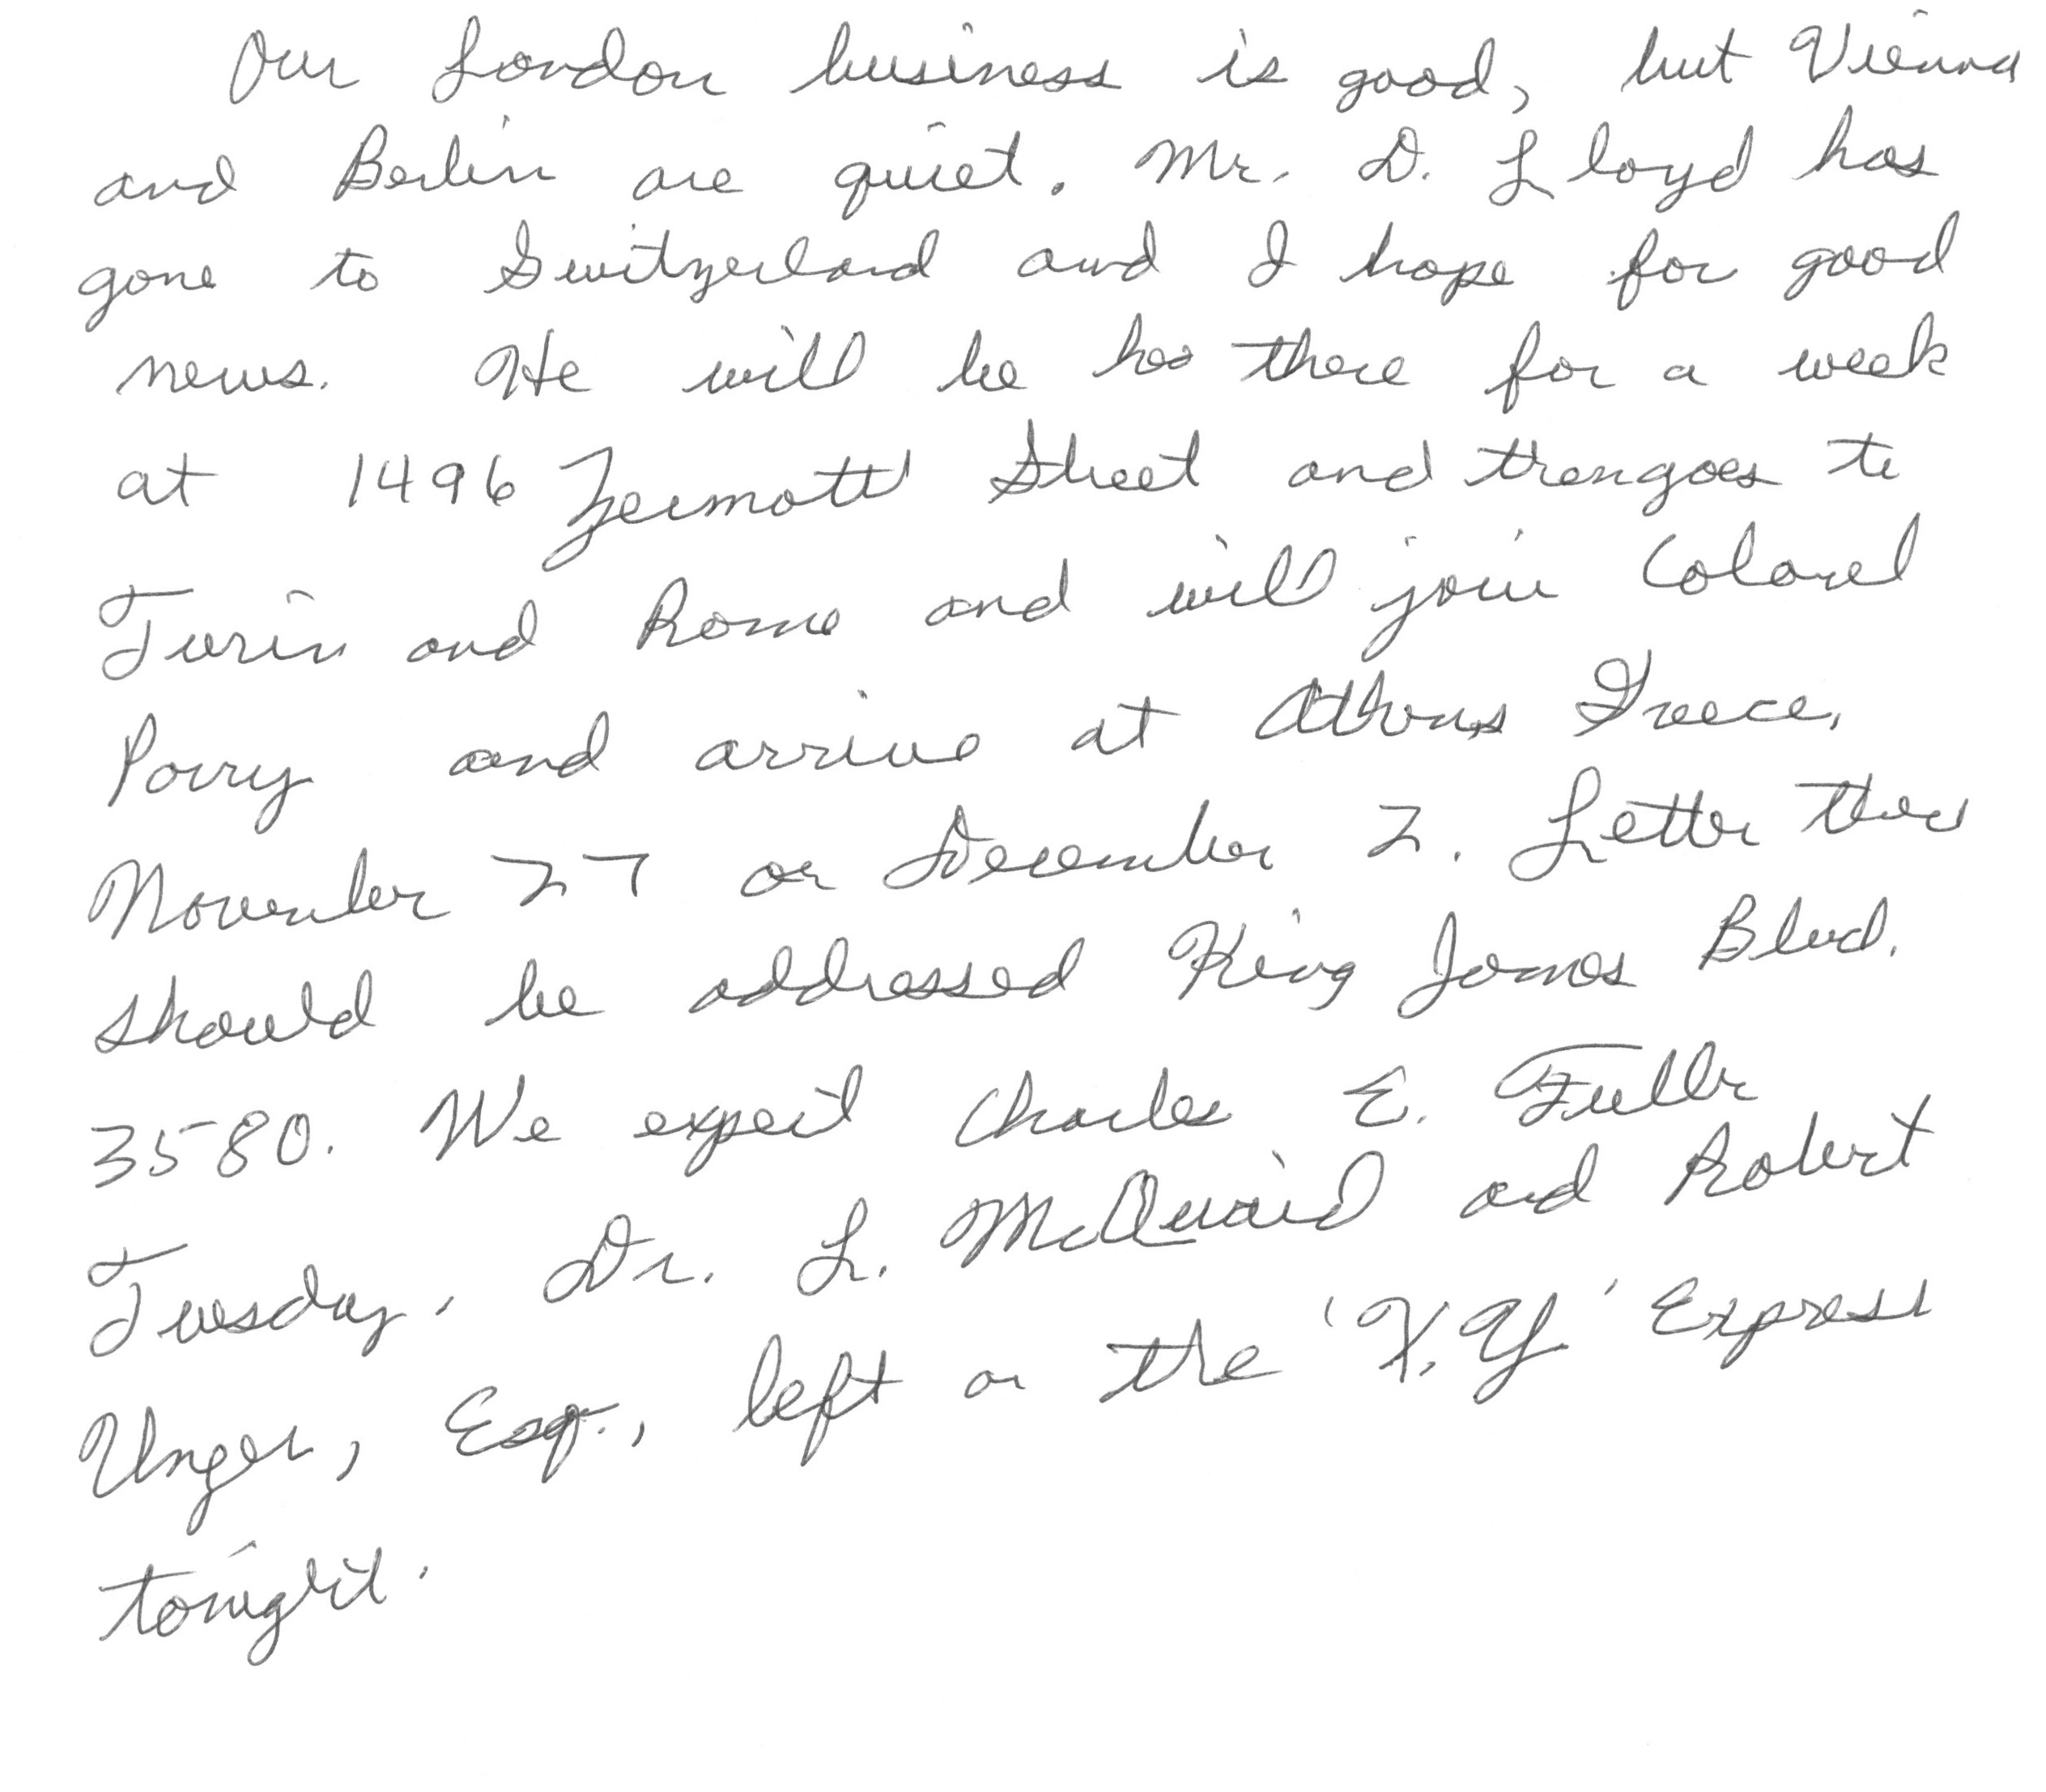 Our London business is good, but Vienna
and Berlin are quiet. Mr. D. Lloyd has
gone to Switzerland and I hope for good
news. He will be has there for a week
at 1496 Zermott Street and then goes to
Turin and Rome and will join Colonel
Parry and arrive at Athens Greece,
November 27 or December 2. Letter there
should be addressed King James Blvd.
3580. We expect Charles E. Fuller
Tuesday. Dr. L. McQuaid and Robert
Unger, Esq., left on the 'X.Y' Express
tonight.